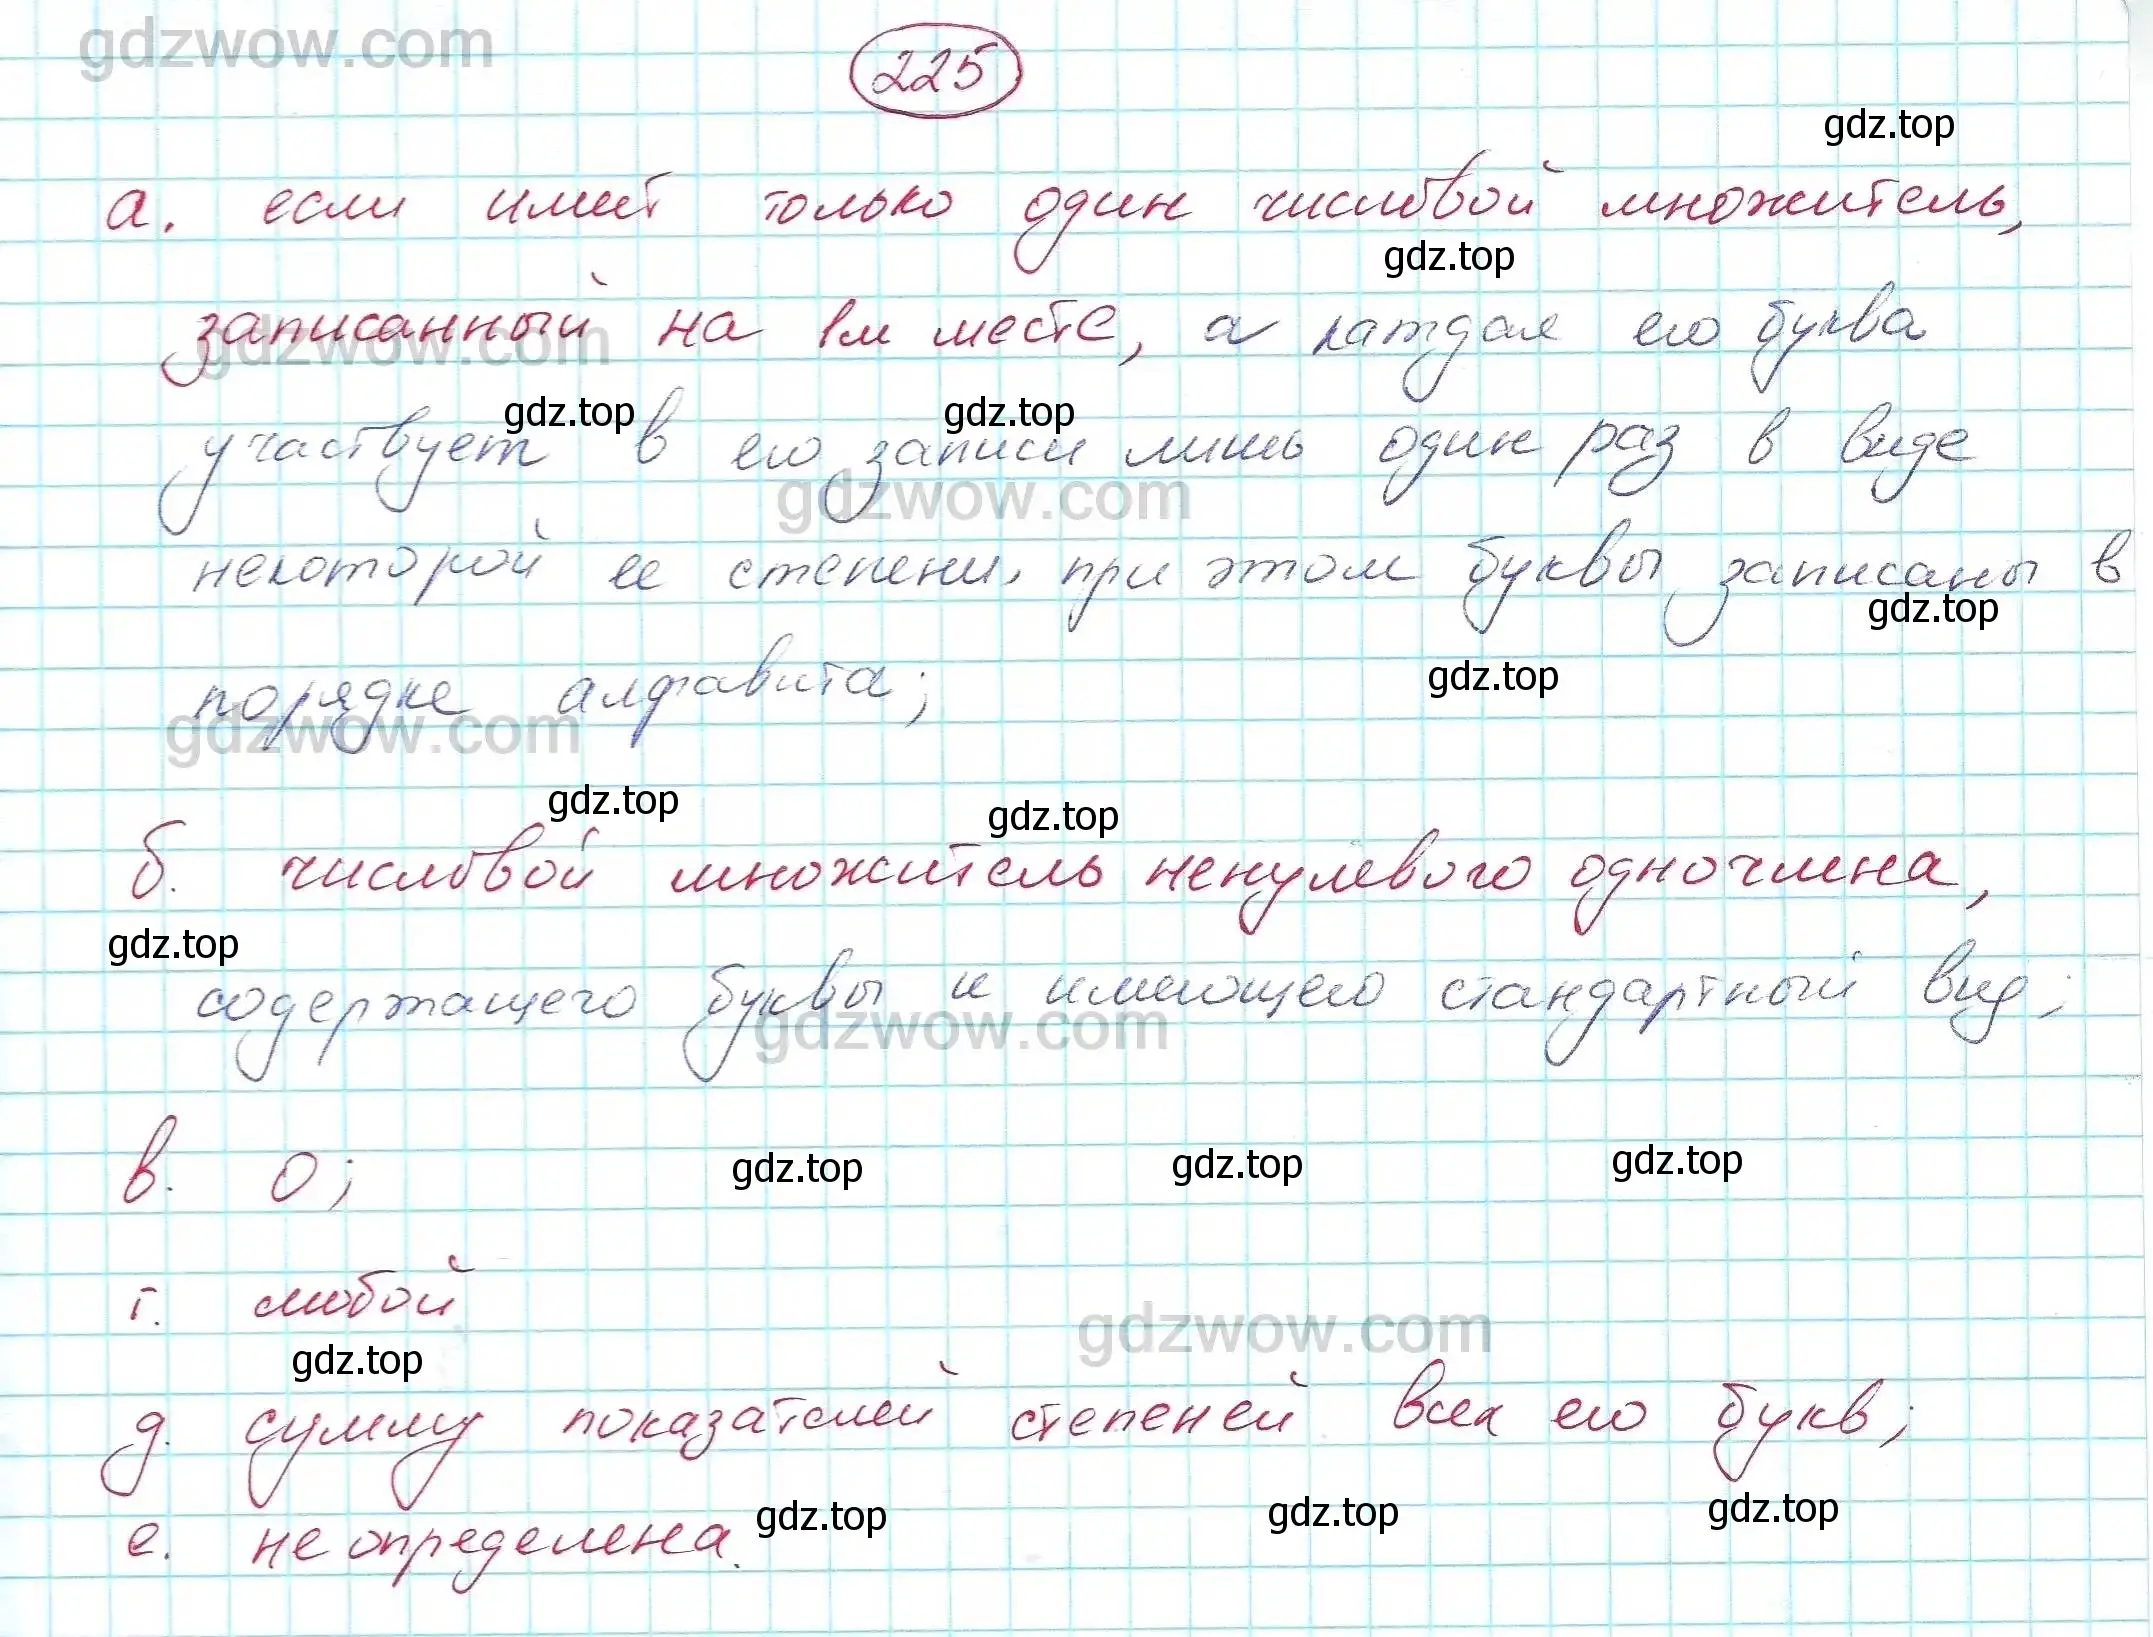 gdzwow.com
225
gdz.top
а. если имеет только один числовой множитель,
gdz.top
записанный на 1м месте, а каждая его буква
gdzwow.com
gdz.top gdz.top
участвует в его записи лишь один раз в виде
gdzwow.com
некоторой ее степени, при этом буквы записаны в
gdz.top
порядке алфавита; gdz.top
gdzwow.com
gdz.top gdz.top
б. числовой множитель ненулевого одночлена,
gdz.top
содержащего буквы и имеющего стандартный вид;
gdzwow.com
в. 0; gdz.top gdz.top gdz.top
г. любой
gdzwow.com
gdz.top
д. сумму показателей степеней всех его букв;
gdz.top gdz.top gdz.top
е. не определена.